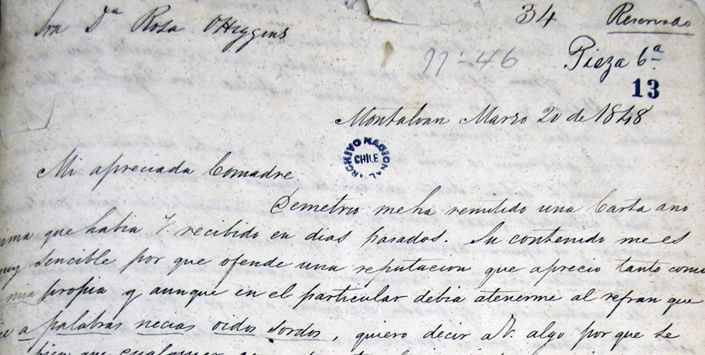 Sra Dª Rosa O'Higgins
34
Reservado
nº 46
Pieza 6ª
13
Montalvan Marzo 20 de 1848
ARCHIVO NACIONAL
CHILE
Mi apreciada Comadre.
Demetrio me ha remitido una Carta ano
nima que habia V. recibido en dias pasados. Su contenido me es
muy sencible por que ofende una reputacion que aprecio tanto como
mia propia y aunque en el particular debia atenerme al refran que
a palabras necias oidos sordos, quiero decir a V. algo por que se
bien que cualquier